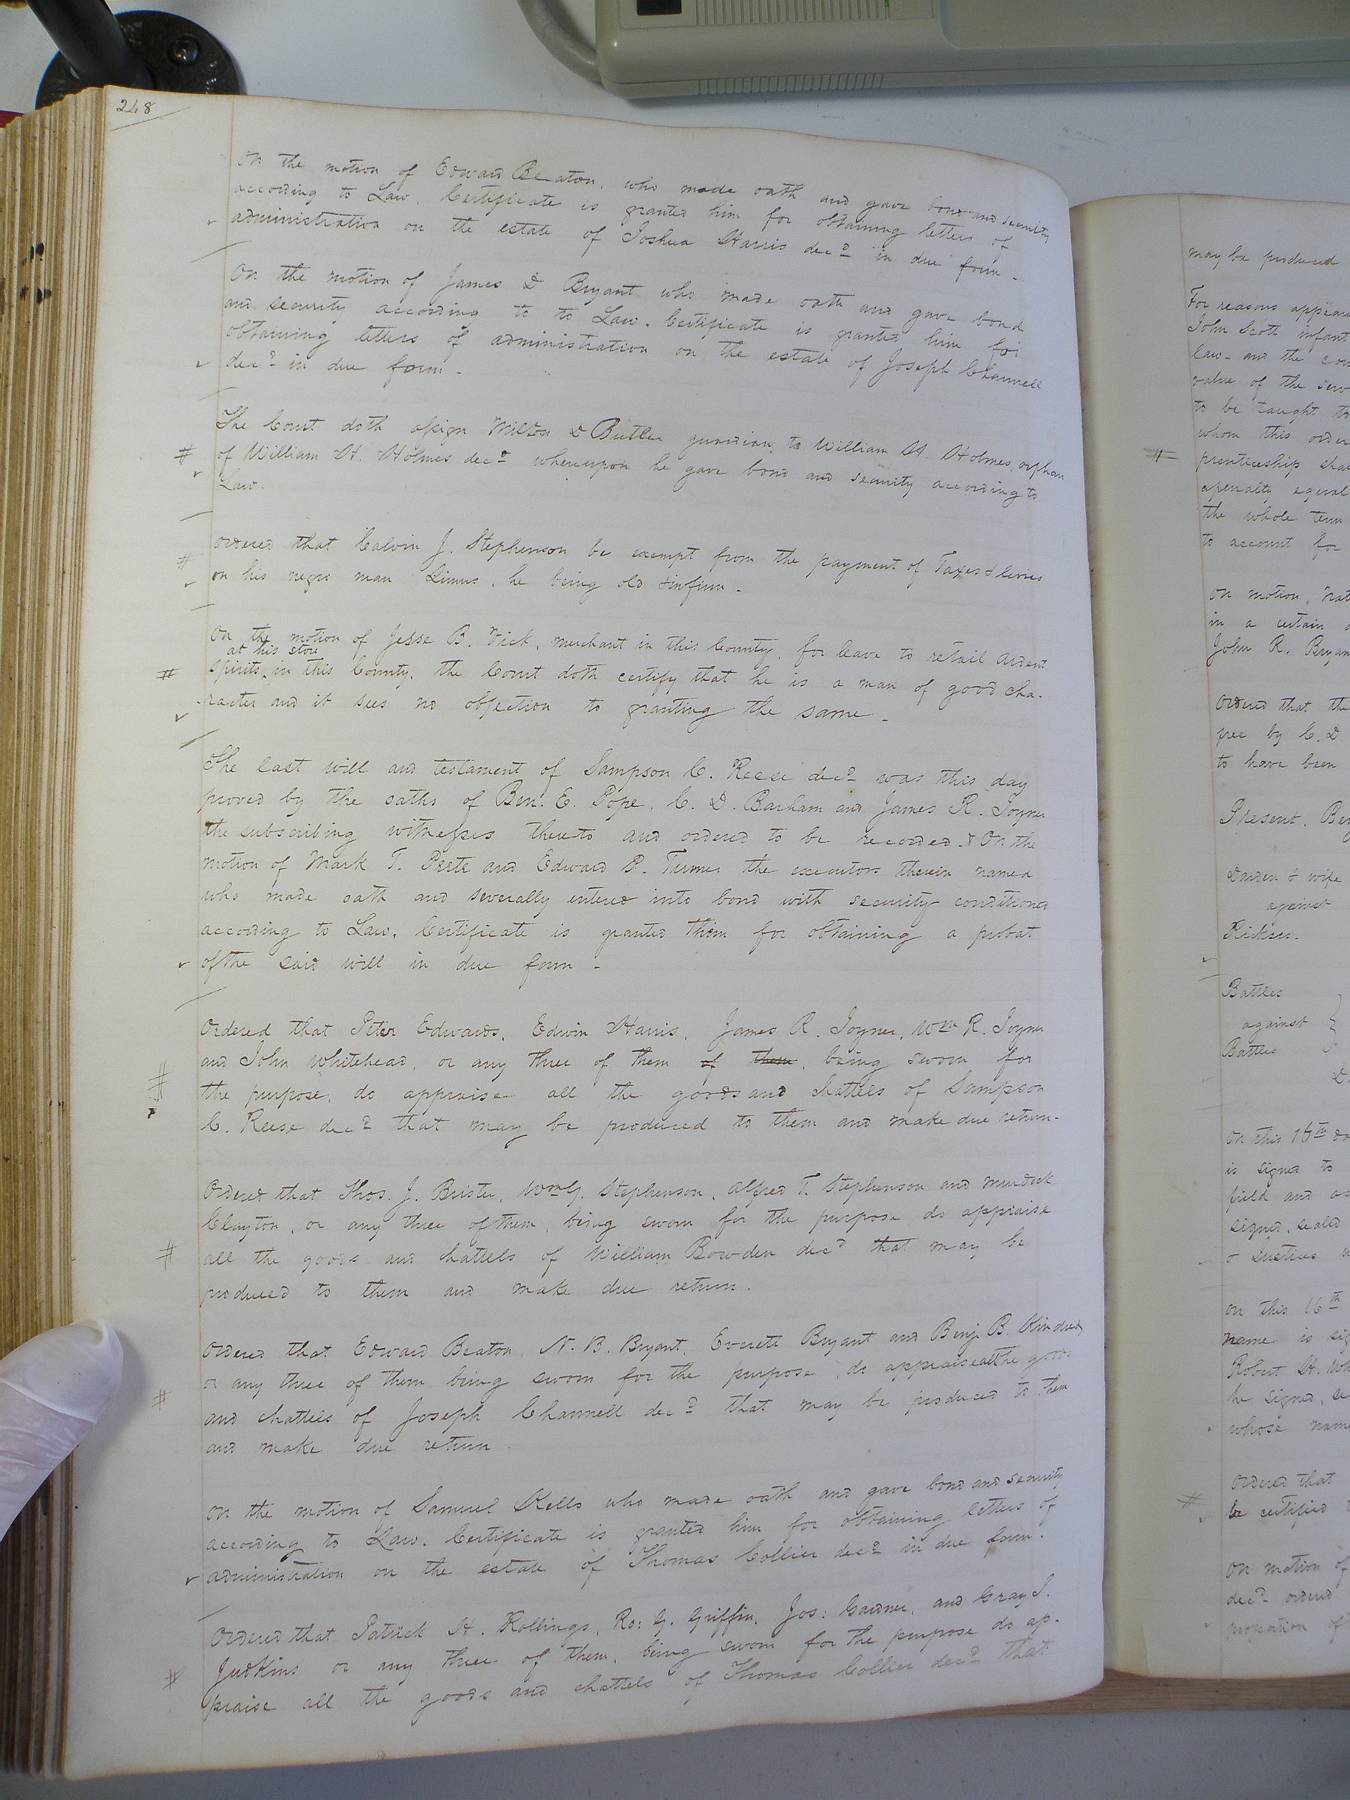 248
On the motion of Edward Beaton, who made oath and gave bond and security
according to Law, Certificate is granted him for obtaining letters of
administration on the estate of Joshua Harris decd in due form.
On the motion of James D Bryant who made oath and gave bond
and security according to to Law. Certificate is granted him for
obtaining letters of administration on the estate of Joseph Channell
decd in due form.
The Court doth assign Milton D Butler guardian to William H. Holmes, orphan
of William H. Holmes decd whereupon he gave bond and security according to
Law.
Ordered that Calvin J. Stephenson be exempt from the payment of Taxes & levies
on his negro man Limus, he being old & infirm.
On the motion of Jesse B. Vick, merchant in this County, for leave to retail ardent
at his store
spirits in this County, the Court doth certify that he is a man of good cha-
racter and it sees no objection to granting the same.
The last will and testament of Sampson C. Reese decd was this day
proved by the oaths of Ben. E. Pope, C. D. Barham and James R. Joyner
the subscribing witnesses thereto and ordered to be recorded. & On the
motion of Mark T. Peete and Edward P. Turner the executors therein named
who made oath and severally entered into bond with security conditioned
according to Law, Certificate is granted them for obtaining a probat
of the said will in due form.
Ordered that Peter Edwards, Edwin Harris, James R. Joyner, Wm R. Joyner
and John Whitehead, or any three of them of them, being sworn for
the purpose, do appraise all the goods and chattels of Sampson
C. Reese decd that may be produced to them and make due return.
Ordered that Thos. J. Brister, Wm G. Stephenson, Alfred T. Stephenson and Murdock
Clayton, or any three of them, being sworn for the purpose do appraise
all the goods and chattels of William Bowden decd that may be
produced to them and make due return.
Ordered that Edward Beaton, N. B. Bryant, Everett Bryant and Benj B. Kindred
or any three of them being sworn for the purpose, do appraise all the goods
and chattels of Joseph Channell decd that may be produced to them
and make due return
On the motion of Samuel Kello who made oath and gave bond and security
according to Law. Certificate is granted him for obtaining letters of
administration on the estate of Thomas Collier decd in due form.
Ordered that Patrick H. Rollings, Ro: G. Griffin, Jos: Gardner, and Gray J.
Judkins or any three of them, being sworn for the purpose do ap-
praise all the goods and chattels of Thomas Collier decd that
may be produced
For reasons
John Scott infant
law - and the
value of the
to be taught
whom this order
prenticeship
a penalty equal
the whole term
to account for
On motion,
in a certain
John R. Bryan
Ordered that the
free by C. D
to have been
Present.
Darden & wife
against
Ricks
Battles
against
Battles
On this 16th
is signed to
field and
signed, sealed
On this 16th
name is
Robert H.
he signed,
whose name
Ordered that
be certified
On motion of
decd ordered